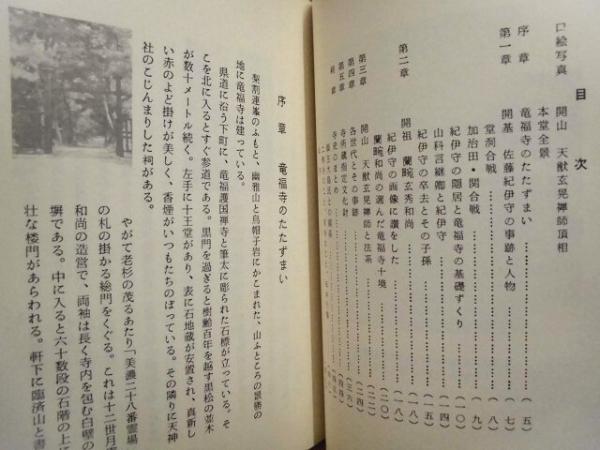 目次
口絵写真 開山 天猷玄晃禅師頂相
本堂全景
序章 竜福寺のたたずまい……(五)
第一章 開基 佐藤紀伊守の事跡と人物……(七)
堂洞合戦……(八)
加治田・関合戦……(九)
紀伊守の隠居と竜福寺の基礎づくり……(一〇)
山科言継卿と紀伊守……(一四)
紀伊守の卒去とその子孫……(一五)
紀伊守の画像に讃をした
第二章 開祖 蘭畹玄秀和尚……(一八)
蘭畹和尚の選んだ竜福寺十境……(二〇)
第三章 開山 天猷玄晃禅師と法系……(二二)
第四章 各世代とその事跡
第五章 寺所蔵指定文化財
序章 竜福寺のたたずまい
梨割連峯のふもと、幽雅山と烏帽子岩にかこまれた、山ふところの景勝の
地に竜福寺は建っている。
県道に沿う下町に、竜福護国禅寺と筆太に彫られた石標が立っている。そ
こを北に入るとすぐ参道である。黒門を過ぎると樹齢百年を越す黒松の並木
が数十メートル続く。左手に十王堂があり、表に石地蔵が安置され、真新し
い赤のよど掛けが美しく、香煙がいつもたちのぼっている。その隣りに天神
社のこじんまりした祠がある。
やがて老杉の茂るあたり「美濃二十八番霊場
の札の掛かる総門をくぐる。これは十二世月
和尚の造営で、両袖は長く寺内を包む白壁の
塀である。中に入ると六十数段の石階の上に
壮な楼門があらわれる。軒下に臨済山と書